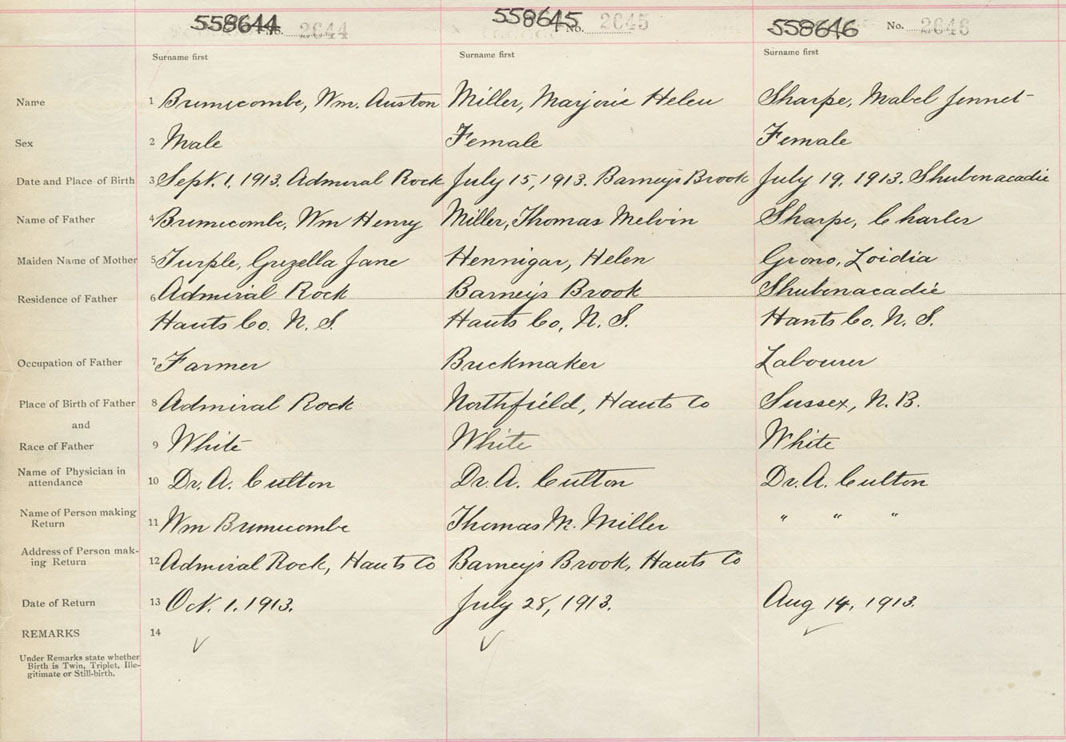 558644 No. 2644 558645 No. 2645 558646 No. 2646
Surname first Surname first Surname first
Name 1 Brumecombe, Wm. Auston Miller, Marjorie Helen Sharpe, Mabel Jennet
Sex 2 Male Female Female
Date and Place of Birth 3 Sept. 1, 1913. Admiral Rock July 15, 1913. Barneys Brook July 19, 1913. Shubenacadie
Name of Father 4 Brumecombe, Wm Henry Miller, Thomas Melvin Sharpe, Charles
Maiden Name of Mother 5 Turple, Grezella Jane Hennigar, Helen Grono, Loidia
Residence of Father 6 Admiral Rock Barneys Brook Shubenacadie
Hants Co. N. S. Hants Co, N. S. Hants Co. N. S.
Occupation of Father 7 Farmer Brickmaker Labourer
Place of Birth of Father 8 Admiral Rock Northfield, Hants Co Sussex, N. B.
and
Race of Father 9 White White White
Name of Physician in
attendance 10 Dr. A. Culton Dr. A. Culton Dr. A. Culton
Name of Person making
Return 11 Wm Brumecombe Thomas M. Miller " " "
Address of Person mak-
ing Return 12 Admiral Rock, Hants Co Barneys Brook, Hants Co
Date of Return 13 Oct. 1. 1913. July 28, 1913. Aug 14, 1913.
REMARKS 14
Under Remarks state whether
Birth is Twin, Triplet, Ille-
gitimate or Still-birth.